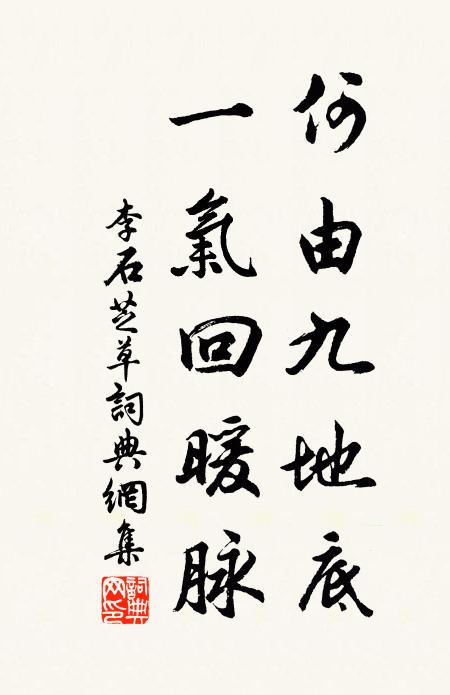 何由九地底
一氣回暖脉
李石芝草詞典網集
詞典網印